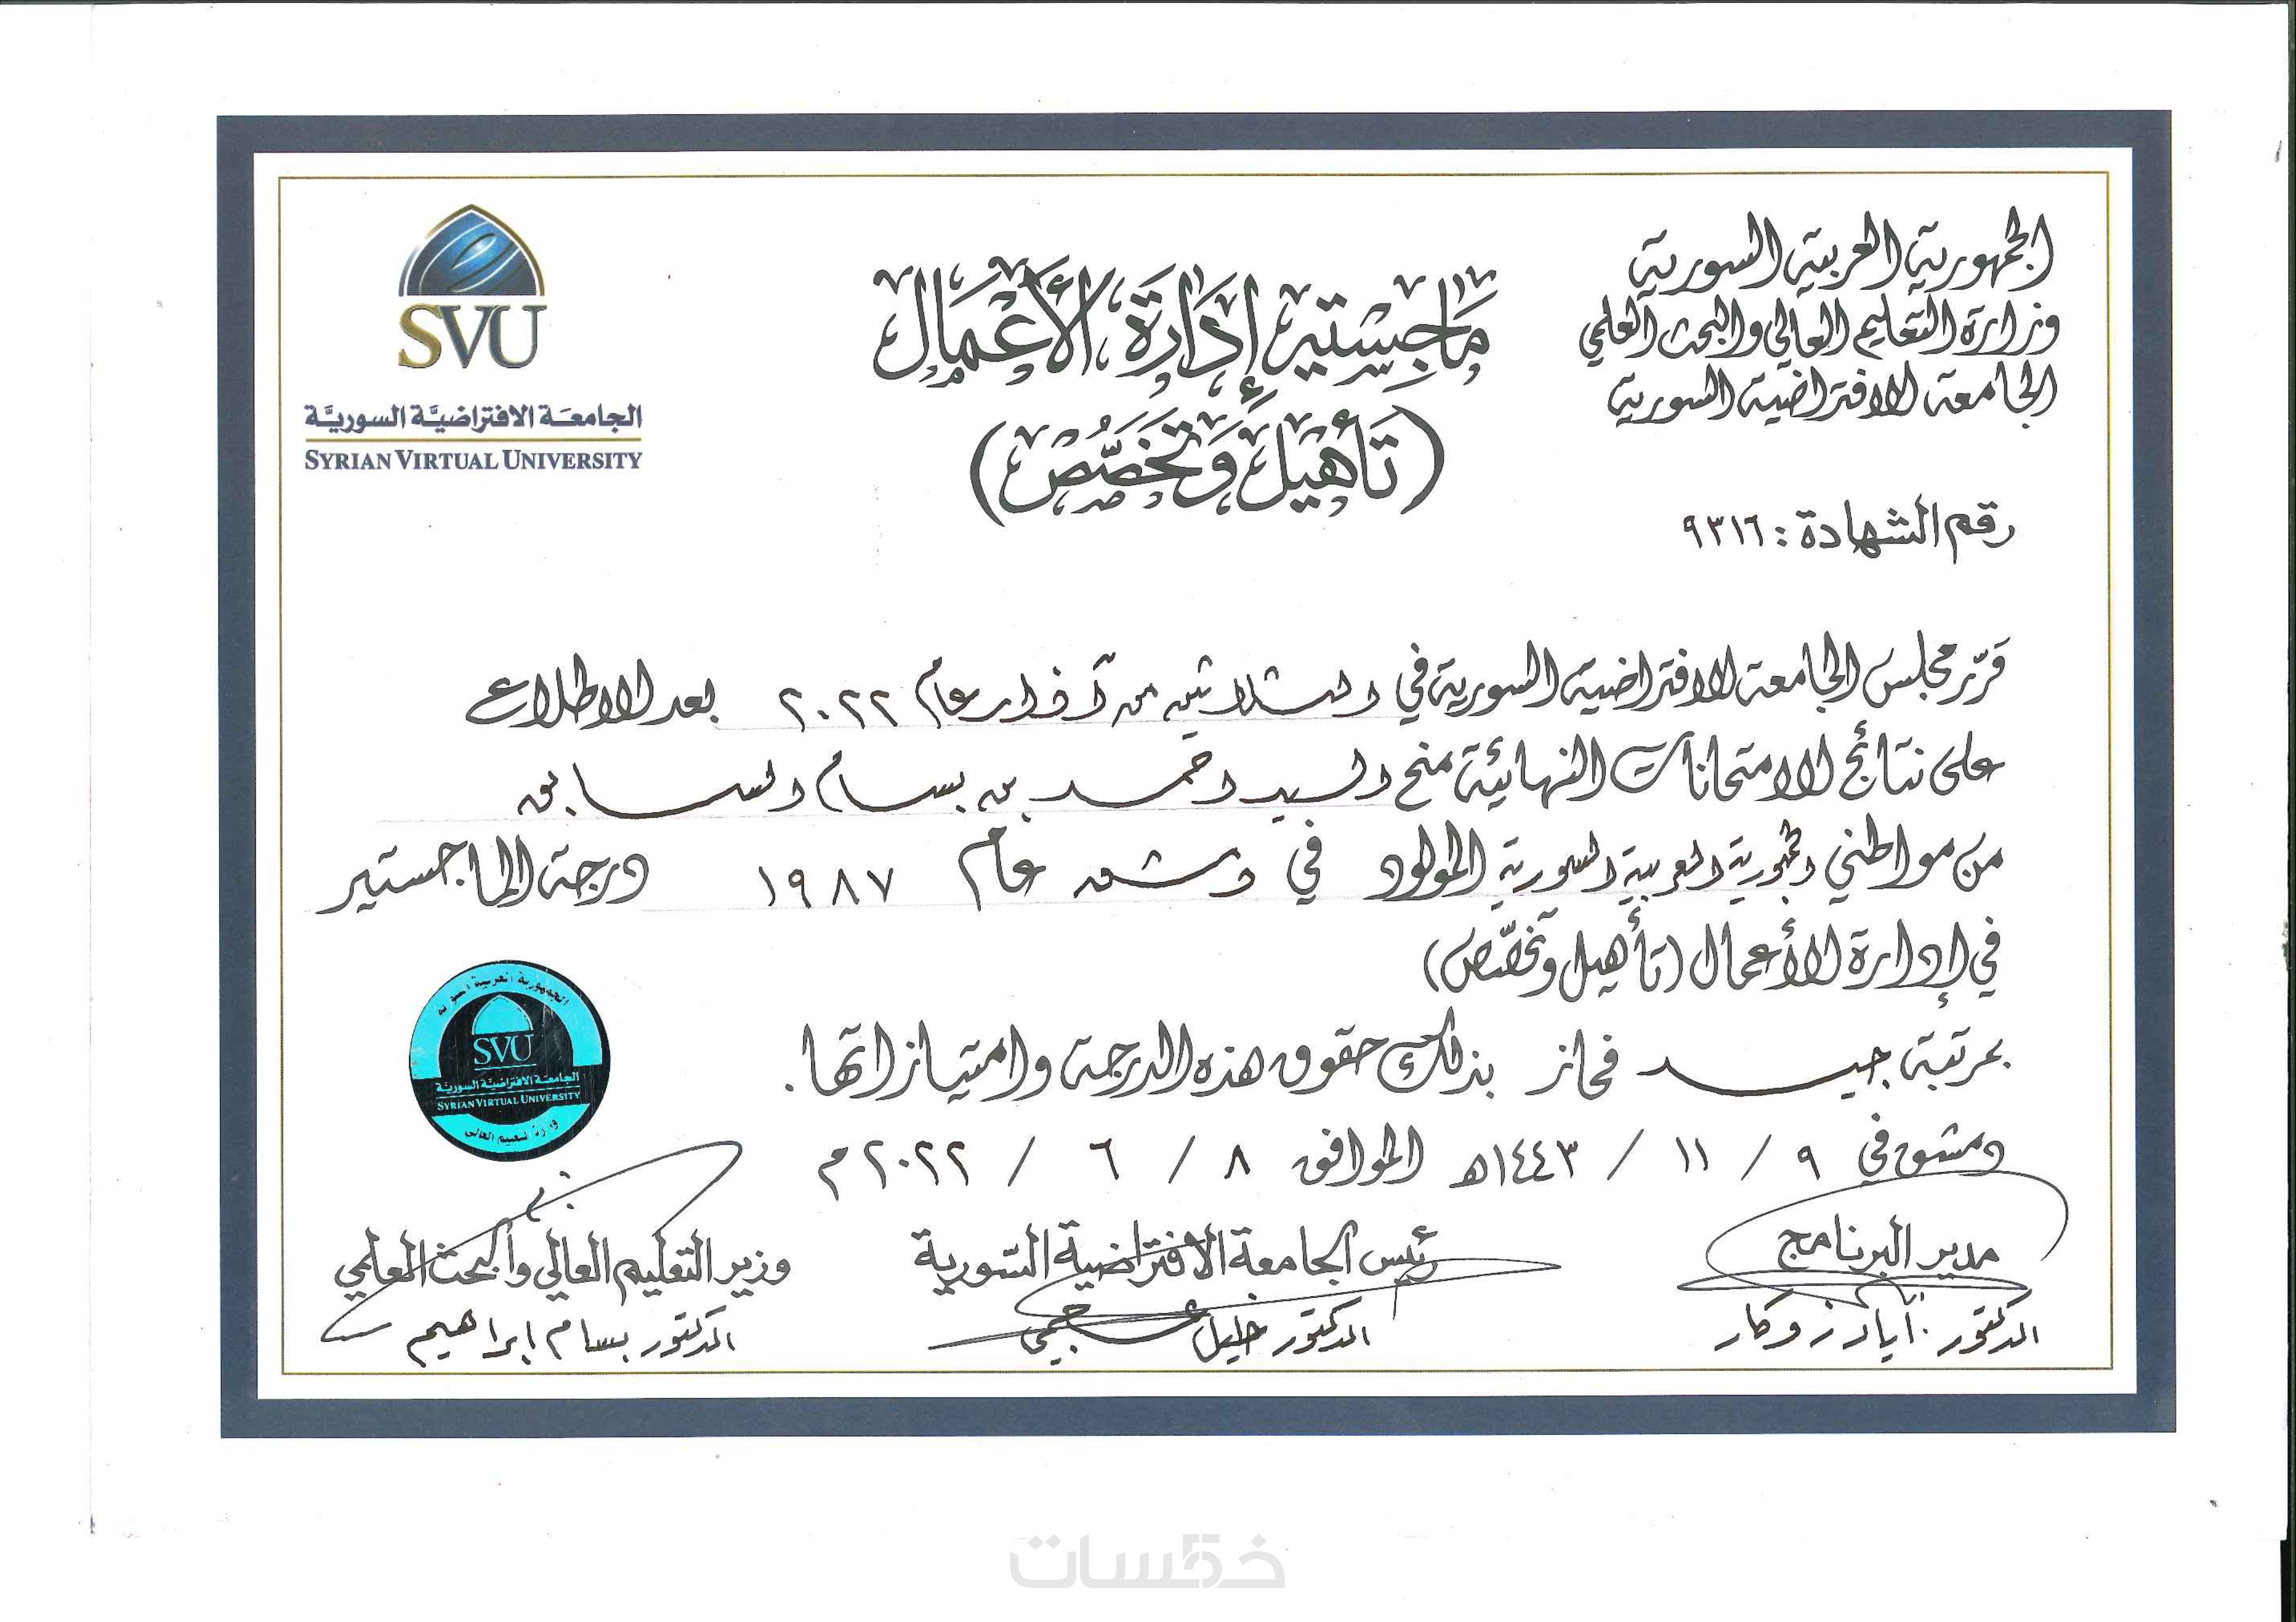 الجمهورية العربية السورية
وزارة التعليم العالي والبحث العلمي
الجامعة الافتراضية السورية
رقم الشهادة : ٩٣١٦
مَاجِستير إدَارَة الأعْمَال
(تَأهْيل وَتخَصُّص)
SVU
الجامعـة الافتراضيَّـة السوريَّـة
SYRIAN VIRTUAL UNIVERSITY
قرّر مجلس الجامعة الافتراضية السورية في الثلاثين من آذار عام ٢٠٢٢ بعد الاطلاع
على نتائج الامتحانات النهائية منح السيد احمد بن بسام السابق
من مواطني الجمهورية العربية السورية المولود في دمشق عام ١٩٨٧ درجة الماجستير
في إدارة الأعمال (تأهيل وتخصّص)
بمرتبة جيد فحاز بذلك حقوق هذه الدرجة وامتيازاتها .
دمشق في ٩ / ١١ / ١٤٤٣هـ الموافق ٨ / ٦ / ٢٠٢٢ م
الجمهورية العربية السورية
SVU
الجامعـة الافتراضيَّـة السوريَّـة
SYRIAN VIRTUAL UNIVERSITY
وزارة التعليم العالي
مدير البرنامج
الدكتور أياد زوكار
رئيس الجامعة الافتراضية السورية
الدكتور خليل عجمي
وزير التعليم العالي والبحث العلمي
الدكتور بسام ابراهيم
خمسات